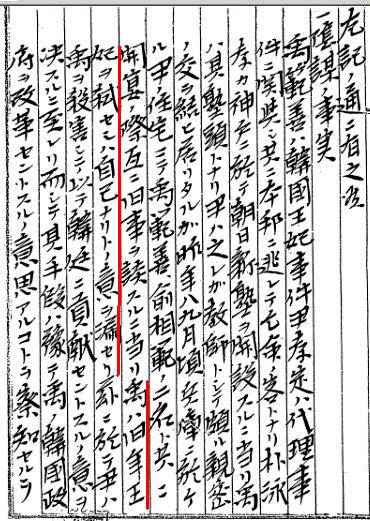 左記ノ通ニ有之
一陰謀ノ事実
禹範善ハ韓国王妃事件尹孝定ハ代理事
件ニ関与シ共ニ本邦ニ逃レテ亡命ノ客トナリ朴泳
孝カ神戸ニ於テ朝日新塾ヲ開設スルニ当リ禹
ハ其塾頭トナリ尹ハ之レガ教師トシテ頗ル親密
ノ交ヲ結ヒ居リタルガ昨年八九月頃兵庫ニ於ケ
ル尹ノ住宅ニテ禹範善、俞相範ノ二名ト共ニ
開宴ノ際互ニ旧事ヲ談スルニ当リ禹ハ旧年王
妃ヲ弑セシハ自己ナリトノ意ヲ漏セリ茲ニ於テ尹ハ
禹ヲ殺害シテ以テ韓廷ニ貢献セントスルノ意ヲ
決スルニ至レリ而シテ其手段ハ豫テ禹ノ韓国政
府ヲ改革セントスルノ意思アルコトヲ察知セルヲ